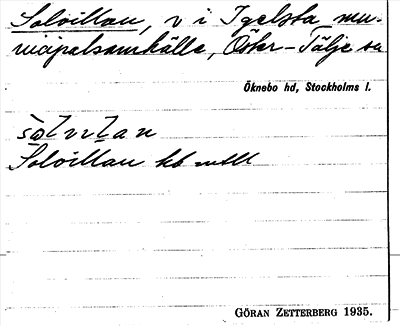 Solvillan, v i Igelsta mu-
nicipalsamhälle, Öster-Tälje sn
Öknebo hd, Stockholms l.
Solvillan
GÖRAN ZETTERBERG 1935.